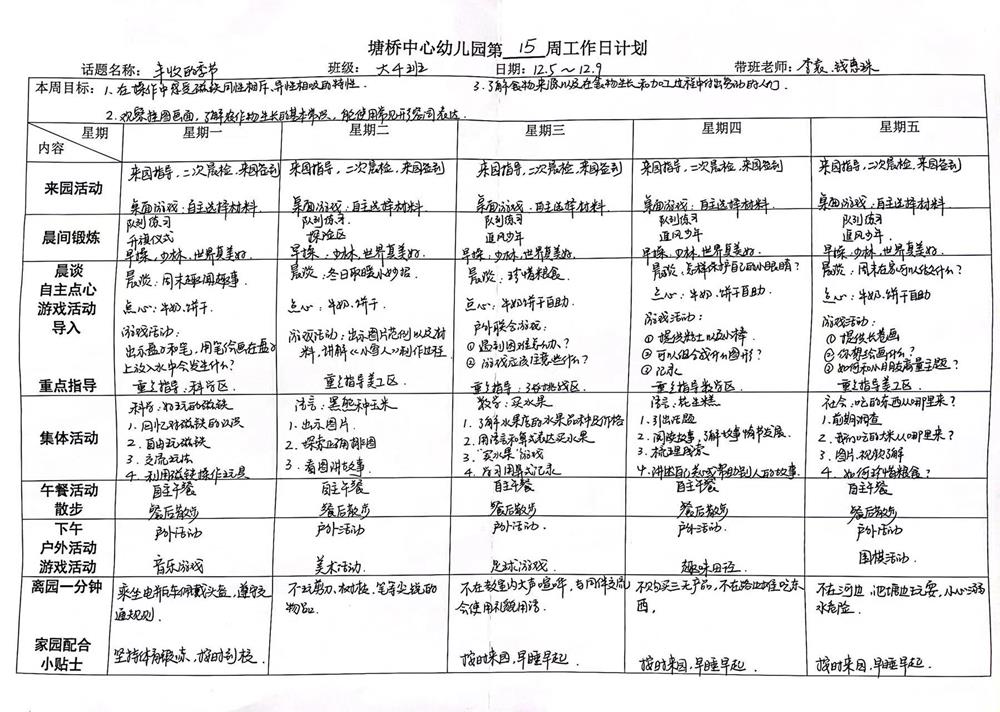 塘桥中心幼儿园第 15 周工作日计划
话题名称：丰收的季节 班级：大4班 日期：12.5～12.9 带班老师：
本周目标：1.在操作中感受磁铁同性相斥、异性相吸的特性。 3.了解食物来源以及在食物生长和加工过程中付出劳动的人们。
2.观察挂图画面，了解农作物生长的基本常识，能使用常见的字词表达。
星期 内容 星期一 星期二 星期三 星期四 星期五
来园活动
来园指导，二次晨检，来园签到 来园指导，二次晨检，来园签到 来园指导，二次晨检，来园签到 来园指导，二次晨检，来园签到 来园指导，二次晨检，来园签到
桌面游戏：自主选择材料 桌面游戏：自主选择材料. 桌面游戏：自主选择材料. 桌面游戏：自主选择材料. 桌面游戏：自主选择材料.
晨间锻炼
队列练习 队列练习 队列练习 队列练习 队列练习
升旗仪式 探险区 追风少年 追风少年 追风少年
早操，少林，世界真美好. 早操，少林，世界真美好. 早操，少林，世界真美好. 早操，少林，世界真美好. 早操，少林，世界真美好.
晨谈
自主点心
游戏活动
导入
重点指导
晨谈：周末趣闻趣事 晨谈：冬日取暖小妙招 晨谈：珍惜粮食. 晨谈：怎样保护自己的小眼睛？ 晨谈：周末在家可以做什么？
点心：牛奶.饼干. 点心：牛奶.饼干 点心：牛奶饼干自助 点心：牛奶.饼干自助. 点心：牛奶.饼干自助
游戏活动：
出示盘子和笔，用笔绘画在盘子
上放入水中会发生什么？
重点指导：科学区.
游戏活动：出示图片范例以及材
料，讲解《小雪人》制作过程
重点指导美工区.
户外联合游戏：
①遇到困难怎么办？
②游戏应该注意些什么？
重点指导：
游戏活动：
①提供粘土以及小棒
②可以组合成什么图形？
③记录
重点指导数学区
游戏活动：
①提供长卷画
②你想绘画什么？
重点指导美工区.
集体活动
科学：好玩的磁铁
1.回忆对磁铁的认识
2.自由玩磁铁
3.交流玩法
4.利用磁铁操作玩具
语言：黑熊种玉米
1.出示图片
2.探索正确排图
3.看图讲故事.
数学：买水果
1.了解水果店的水果品种及价格
2.用语言和算式表达买水果
3.“买水果”游戏
4.学习用算式记录
语言：花生糕
1.引出话题
2.阅读故事，了解故事情节发展.
3.梳理线索
社会：吃的东西从哪里来？
1.前期调查
2.我们吃的大米从哪里来？
3.图片、视频了解
4.如何珍惜粮食？
午餐活动
散步
自主午餐 自主午餐 自主午餐 自主午餐 自主午餐
餐后散步 餐后散步 餐后散步 餐后散步 餐后散步
下午
户外活动
游戏活动
户外活动 户外活动 户外活动. 户外活动 户外活动
音乐游戏 美术活动 足球游戏. 趣味田径 围棋活动.
离园一分钟
乘坐电瓶车佩戴头盔，遵守交
通规则.
不玩剪刀、树枝、笔等尖锐的
物品.
不在教室内大声喧哗，与同伴交流
会使用礼貌用语.
不购买三无产品，不在路边摊吃东
西，
不在河边、池塘边玩耍，小心溺
水危险.
家园配合
小贴士
坚持体育锻炼，按时到校. 按时来园，早睡早起. 按时来园，早睡早起. 按时来园，早睡早起.